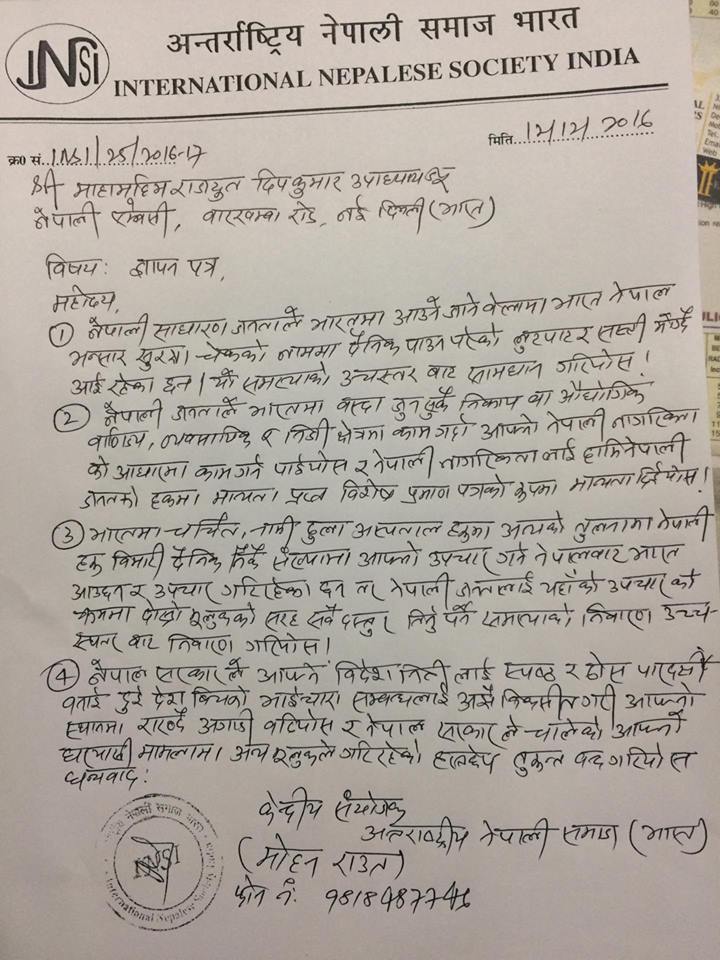 INSI
अन्तर्राष्ट्रिय नेपाली समाज भारत
INTERNATIONAL NEPALESE SOCIETY INDIA
क्र० सं. INSI/25/2016-17
मिति. 12/12/2016
श्री माहामहिम राजदुत दिपकुमार उपाध्याय ज्यू
नेपाली एम्बेसी, वारखम्बा रोड, नई दिल्ली (भारत)
विषय: ज्ञापन पत्र,
महोदय,
① नेपाली साधारण जनताले भारतमा आउने जाने वेलामा भारत नेपाल
भन्सार सुरक्षा चेकको नाममा दैनिक पाउनु परेको लुटपाट र सास्ती
आई रहेका छन् । यो समस्याको उच्चस्तर बाट सामधान गरियोस !
② नेपाली जनताले भारतमा वस्दा जुनसुकै निकाय वा औद्योगिक
वाणिज्य, व्यवसायिक र निजी क्षेत्रमा काम गर्दा आफ्नो नेपाली नागरिकता
को आधारमा काम गर्न पाईयोस र नेपाली नागरिकता लाई हामि नेपाली
जनताको हकमा मान्यता प्राप्त विशेष प्रमाण पत्रको रूपमा मान्यता दिईयोस !
③ भारतमा चर्चित, नामी ठुला अस्पताल हरुमा अन्यको तुलनामा नेपाली
हरु विमारी दैनिक संख्यामा आफ्नो उपचार गर्न नेपालवाट भारत
आउदछन र उपचार गरिरहेका छन तर नेपाली जनतालाई यहाँको उपचार को
क्रममा दोस्रो मुलुकको सरह सर्वै दस्तुर तिर्नु पर्ने समस्याको निवारण उच्च
स्तर बाट निवारण गरियोस ।
④ नेपाल सरकारले आफ्नो विदेश निती लाई स्पष्ठ र ठोस पारदर्शी
वनाई दुई देश विचको भाईचारा सम्बन्धलाई अझै विकसीत गरी आफ्नो
स्थानमा राख्दै अगाडी वढियोस र नेपाल सरकारले चालेको आफ्नो
घरायसी मामलामा अन्य मुलुकले गरिरहेको हस्तक्षेप तुरून्त वन्द गरियोस
धन्यवाद:
केन्द्रीय संयोजक
अन्तराष्ट्रीय नेपाली समाज (भारत)
(मोहन राउत)
फोन नं: 9818487746
अन्तर्राष्ट्रिय नेपाली समाज भारत
INSI
International Nepalese Society